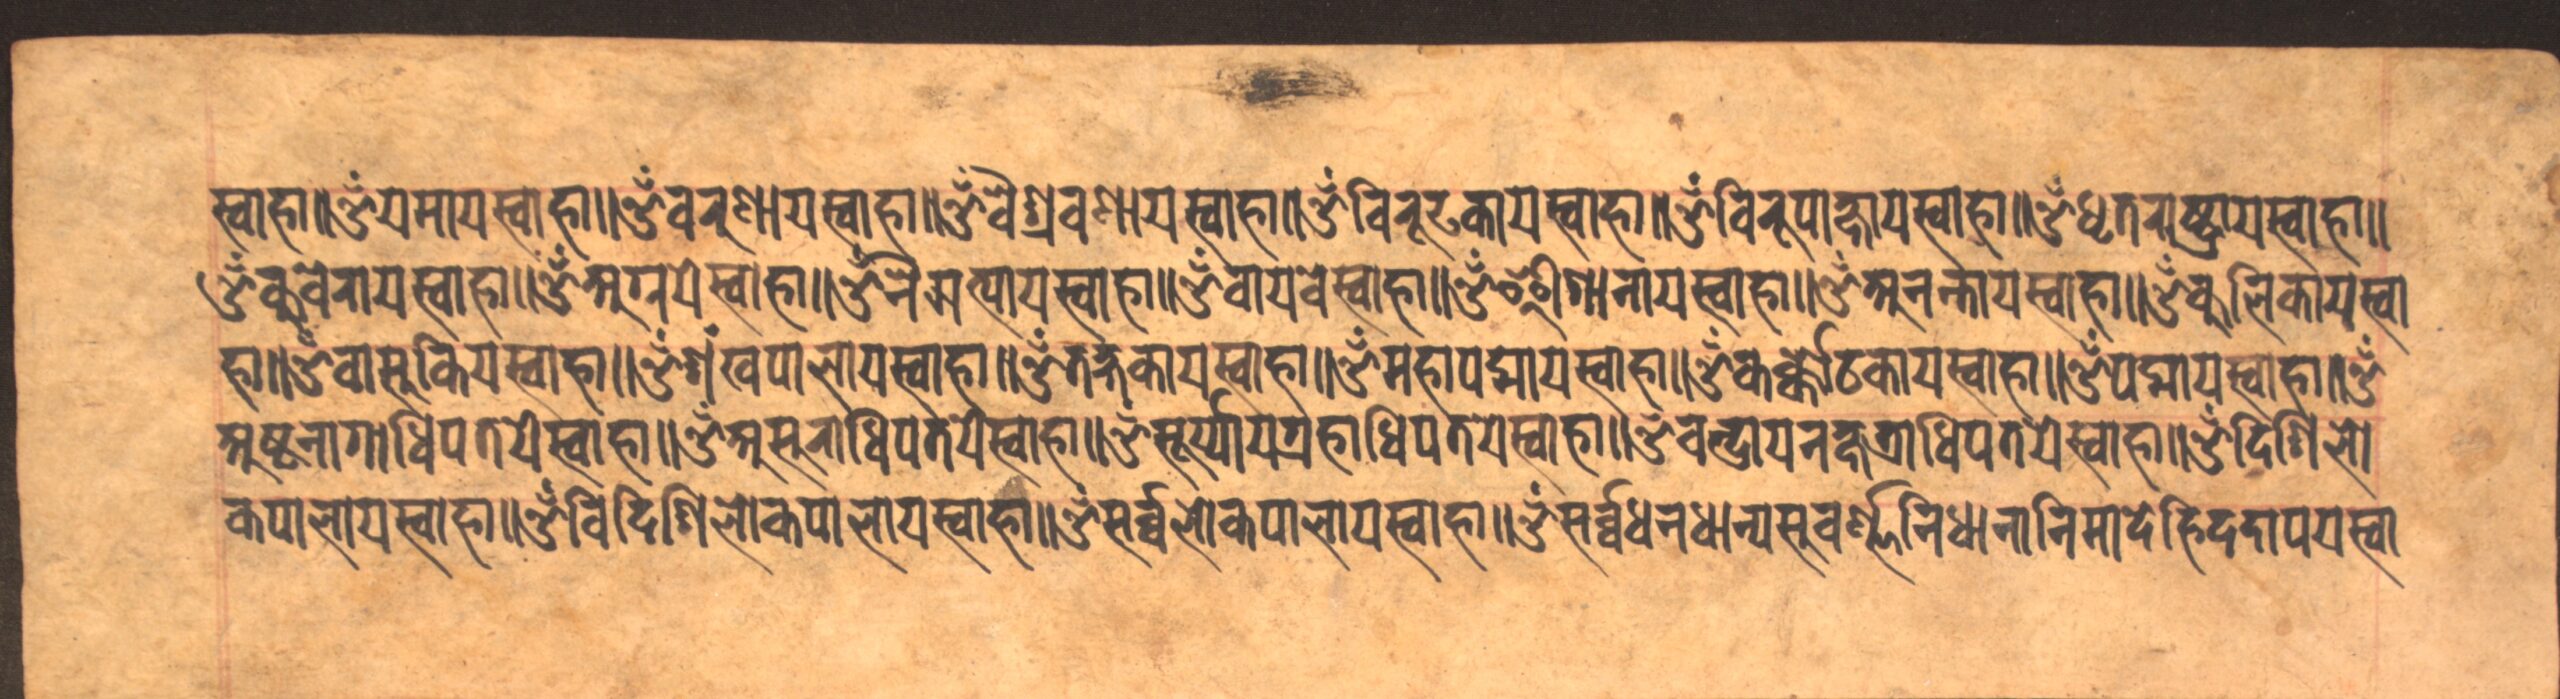 स्वाहा॥ॐयमायस्वाहा॥ॐवरुणायस्वाहा॥ॐवैश्रवणायस्वाहा॥ॐविरूढकायस्वाहा॥ॐविरूपाक्षायस्वाहा॥ॐधृतराष्ट्रायस्वाहा॥
ॐकुवेरायस्वाहा॥ॐअग्नयेस्वाहा॥ॐनैऋत्यायस्वाहा॥ॐवायवेस्वाहा॥ॐईशानायस्वाहा॥ॐअनन्तायस्वाहा॥ॐकुलिकायस्वा
हा॥ॐवासुकियस्वाहा॥ॐशंखपालायस्वाहा॥ॐतक्षकायस्वाहा॥ॐमहापद्मायस्वाहा॥ॐकर्क्कोठकायस्वाहा॥ॐपद्मायस्वाहा॥ॐ
अष्टनागाधिपतयेस्वाहा॥ॐअसुराधिपतयेस्वाहा॥ॐसूर्य्यायग्रहाधिपतयेस्वाहा॥ॐचन्द्रायनक्षत्राधिपतयेस्वाहा॥ॐदिशिलो
कपालायस्वाहा॥ॐविदिशिलोकपालायस्वाहा॥ॐसर्व्वलोकपालायस्वाहा॥ॐसर्व्वधनधान्यसुवर्ण्णनिधानानिमादेहिददापयस्वा